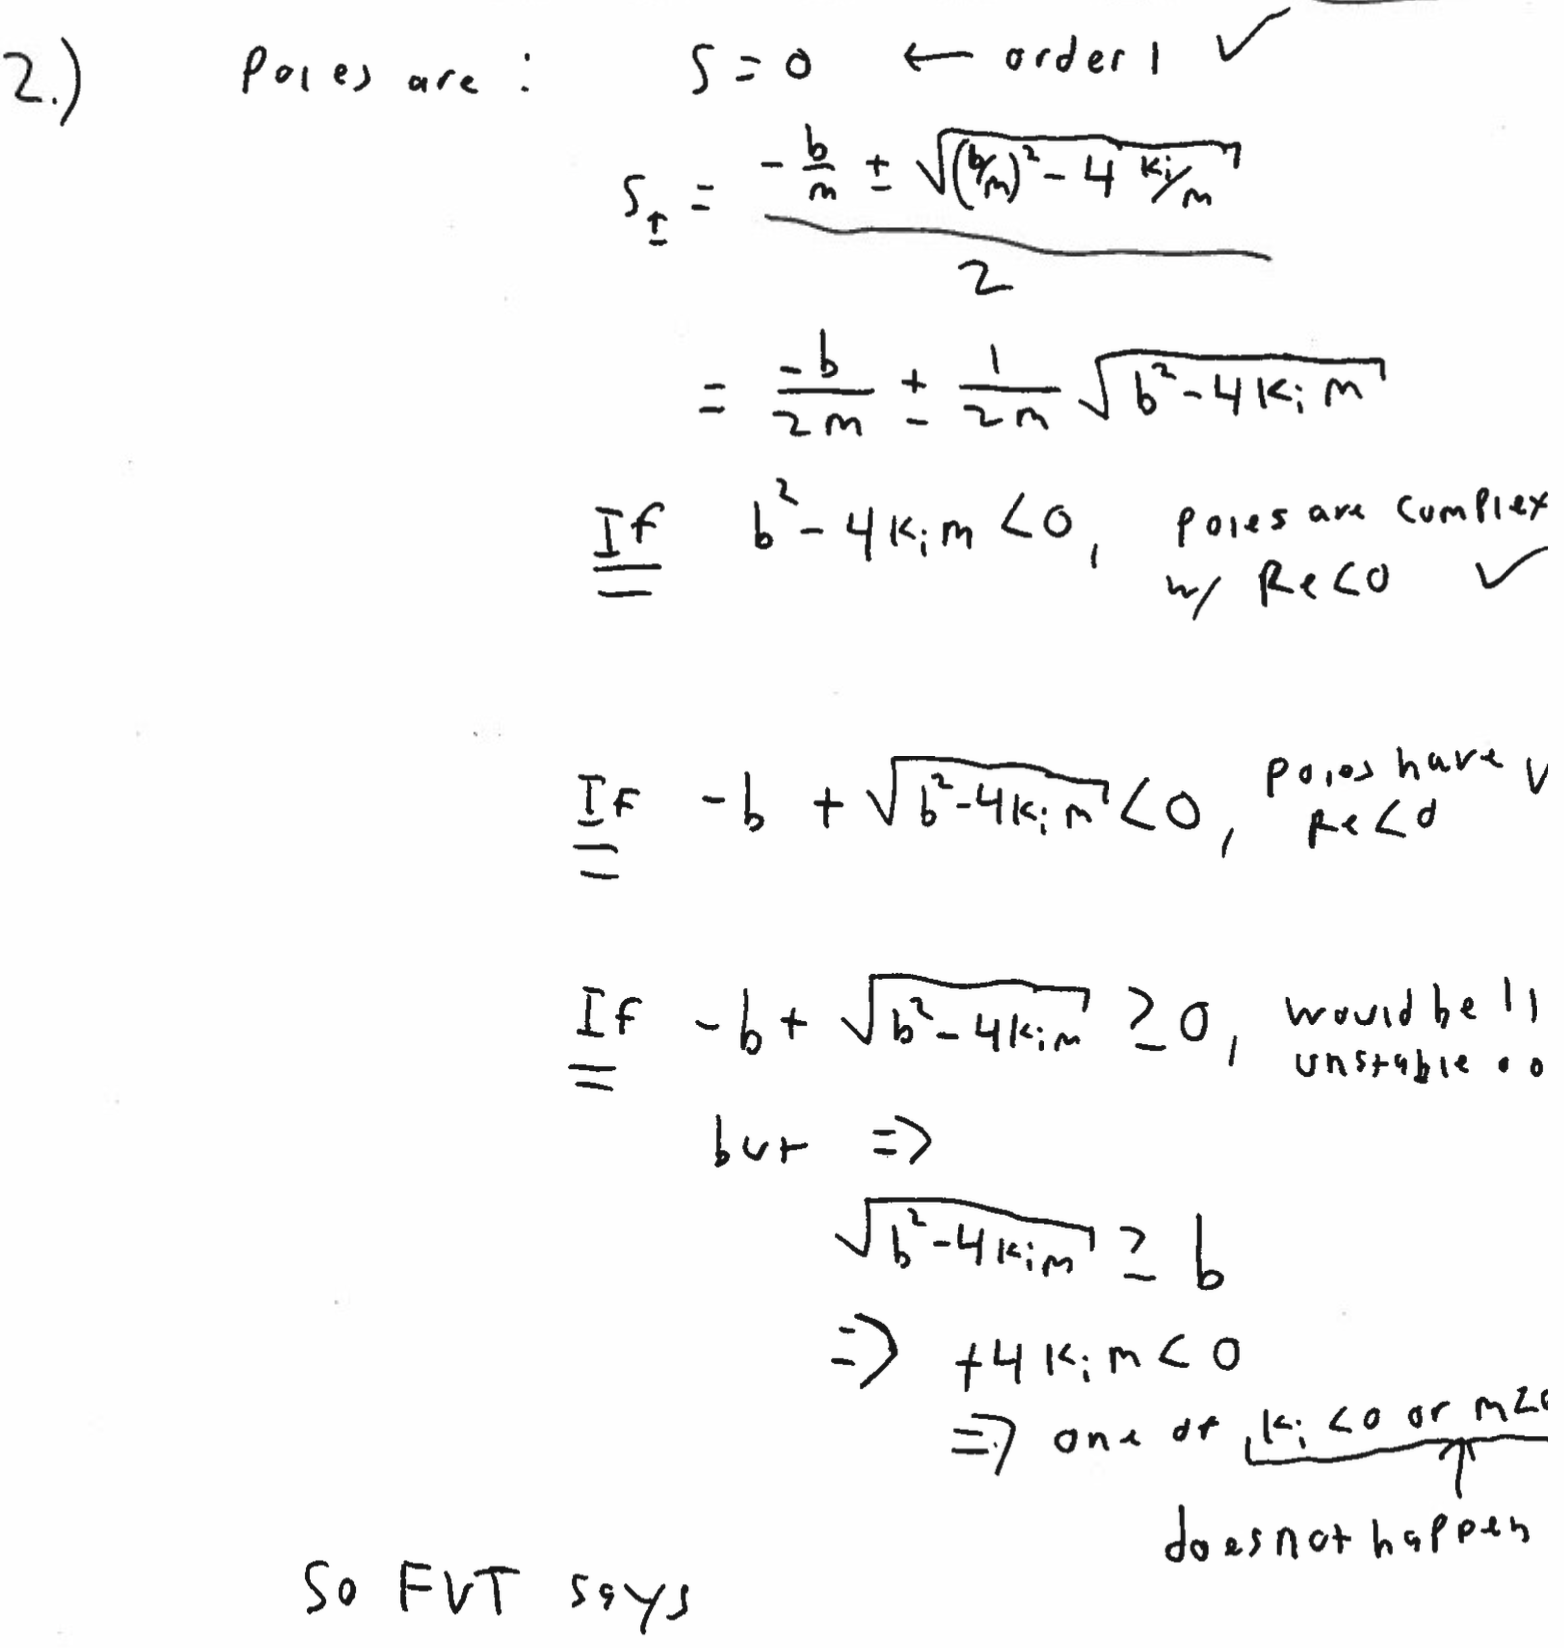 2.) Poles are : S = 0 ← order 1 ✓
S± = (-b/m ± √((b/m)² - 4 ki/m)) / 2
= -b/2m ± 1/2m √(b² - 4 ki m)
If b² - 4 ki m < 0, poles are complex
w/ Re < 0 ✓
If -b + √(b² - 4 ki m) < 0, poles have
Re < 0
If -b + √(b² - 4 ki m) ≥ 0, would be !!
unstable
but ⇒
√(b² - 4 ki m) ≥ b
⇒ +4 ki m < 0
⇒ one of ki < 0 or m <
does not happen
So FVT says